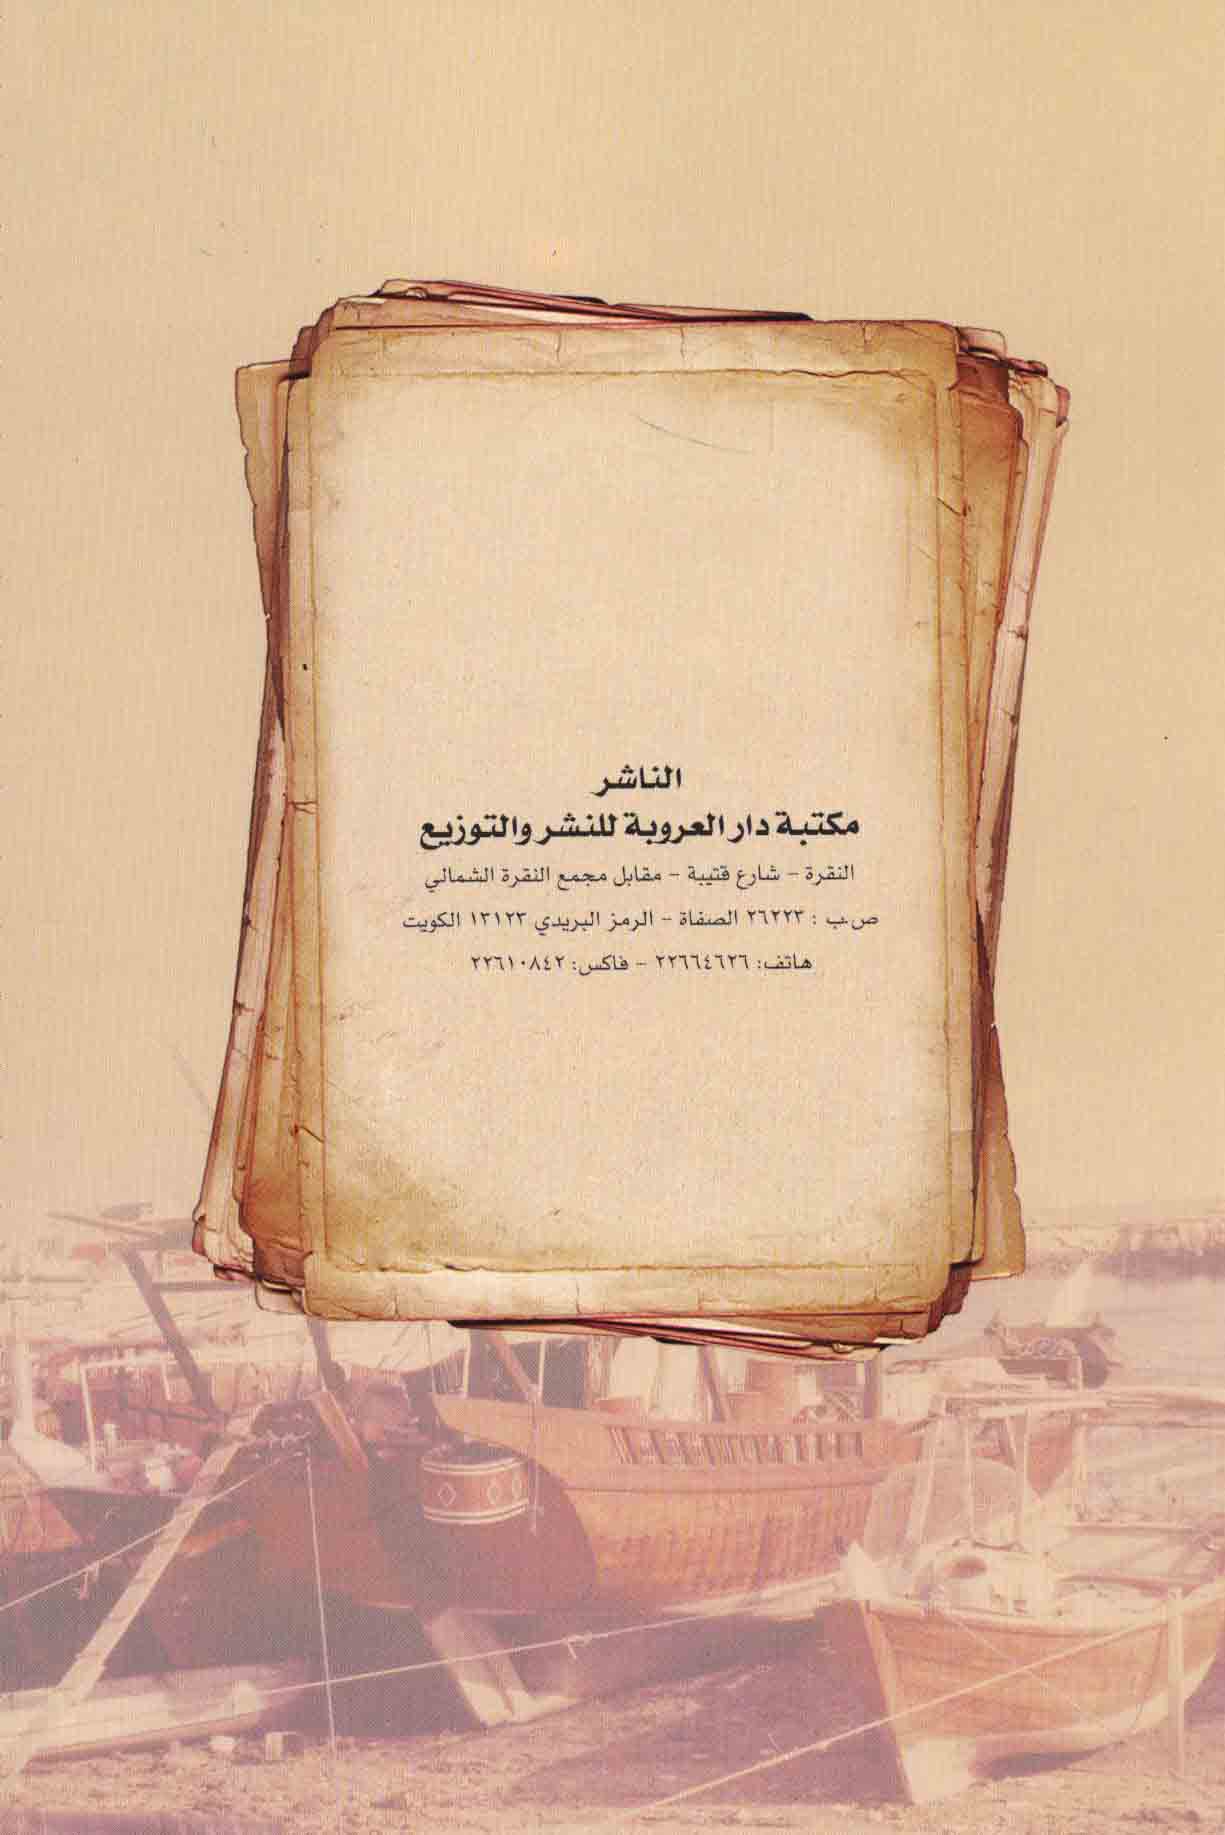 الناشر
مكتبة دار العروبة للنشر والتوزيع
النقرة - شارع قتيبة - مقابل مجمع النقرة الشمالي
ص.ب : ٢٦٢٢٣ الصفاة - الرمز البريدي ١٣١٢٣ الكويت
هاتف: ٢٢٦٦٤٦٢٦ - فاكس: ٢٢٦١٠٨٤٢